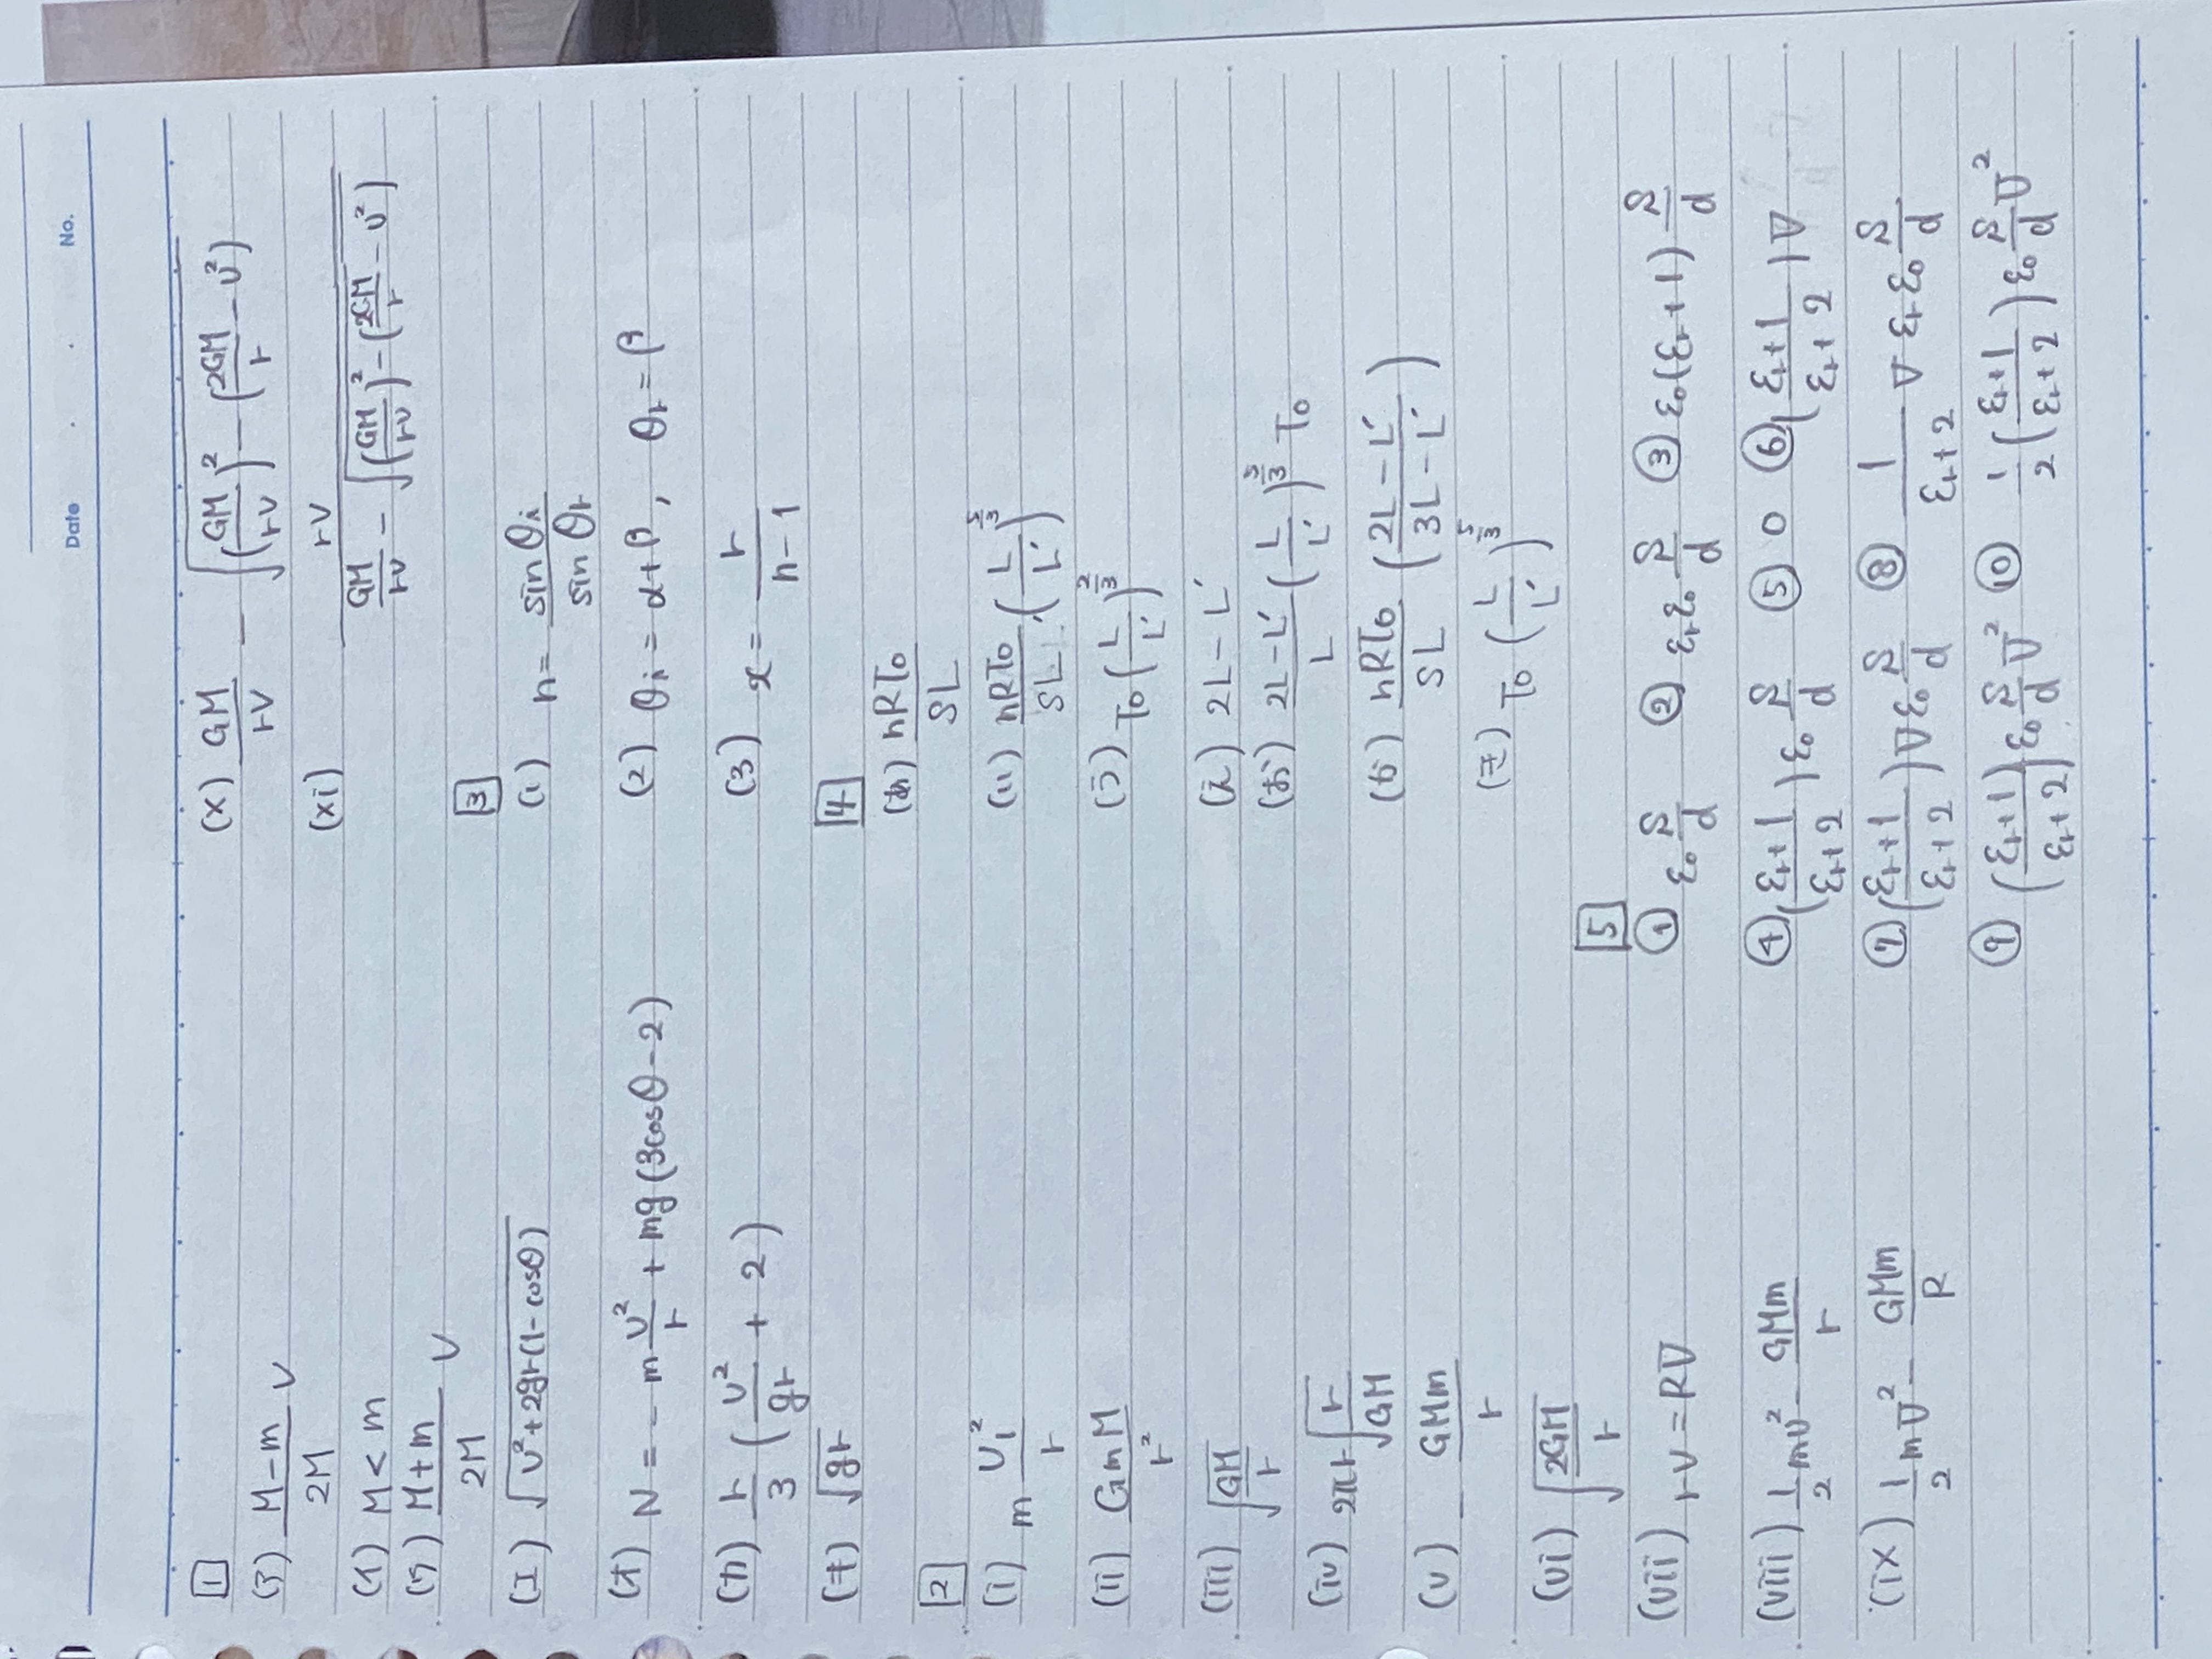 Date . . No.
[1]
(ア) \frac{M-m}{2M} v
(イ) M < m
(ウ) \frac{M+m}{2M} v
(エ) \sqrt{v^2+2gr(1-cosθ)}
(オ) N = - m\frac{v^2}{r} + mg(3cosθ-2)
(カ) \frac{r}{3} (\frac{v^2}{gr} + 2)
(キ) \sqrt{gr}
[2]
(i) m\frac{v_1^2}{r}
(ii) \frac{GmM}{r^2}
(iii) \sqrt{\frac{GM}{r}}
(iv) 2πr\sqrt{\frac{r}{GM}}
(v) - \frac{GMm}{r}
(vi) \sqrt{\frac{2GM}{r}}
(vii) rv = RV
(viii) \frac{1}{2}mv^2 - \frac{GMm}{r}
(ix) \frac{1}{2}mV^2 - \frac{GMm}{R}
(x) \frac{GM}{rv} - \sqrt{(\frac{GM}{rv})^2 - (\frac{2GM}{r} - v^2)}
(xi) \frac{rv}{\frac{GM}{rv} - \sqrt{(\frac{GM}{rv})^2 - (\frac{2GM}{r} - v^2)}}
[3]
(1) n = \frac{sinθi}{sinθr}
(2) θi = α+β, θr = β
(3) x = \frac{r}{n-1}
[4]
(あ) \frac{nRT0}{SL}
(い) \frac{nRT0}{SL} (\frac{L}{L'})^{\frac{5}{3}}
(う) T0 (\frac{L}{L'})^{\frac{2}{3}}
(え) 2L-L'
(お) \frac{2L-L'}{L} (\frac{L}{L'})^{\frac{5}{3}} T0
(か) \frac{nRT0}{SL} (\frac{2L-L'}{3L-L'})
(き) T0 (\frac{L}{L'})^{\frac{5}{3}}
[5]
① ε0\frac{S}{d} ② εrε0\frac{S}{d} ③ ε0(εr+1)\frac{S}{d}
④ (\frac{εr+1}{εr+2})ε0\frac{S}{d} ⑤ 0 ⑥ (\frac{εr+1}{εr+2})V
⑦ (\frac{εr+1}{εr+2})Vε0\frac{S}{d} ⑧ \frac{1}{εr+2} V εrε0\frac{S}{d}
⑨ (\frac{εr+1}{εr+2})ε0\frac{S}{d}V^2 ⑩ \frac{1}{2}(\frac{εr+1}{εr+2})ε0\frac{S}{d}V^2